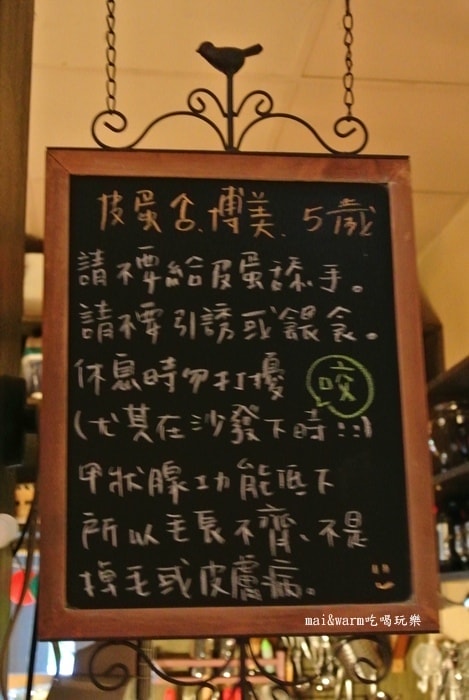 皮蛋&博美. 5歲
請不要給皮蛋舔手。
請不要引誘或餵食。
休息時勿打擾
咬
(尤其在沙發下時!!)
甲狀腺功能低下
所以毛長不齊、不是
掉毛或皮膚病。
mai&warm吃喝玩樂